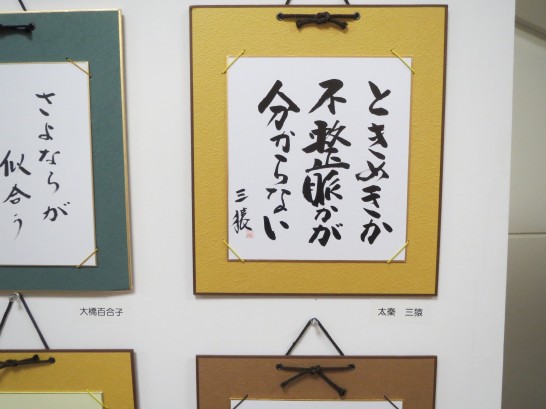 ときめきか
不整脈かが
分からない
三猿
太秦 三猿
さよならが
似合う
大橋百合子